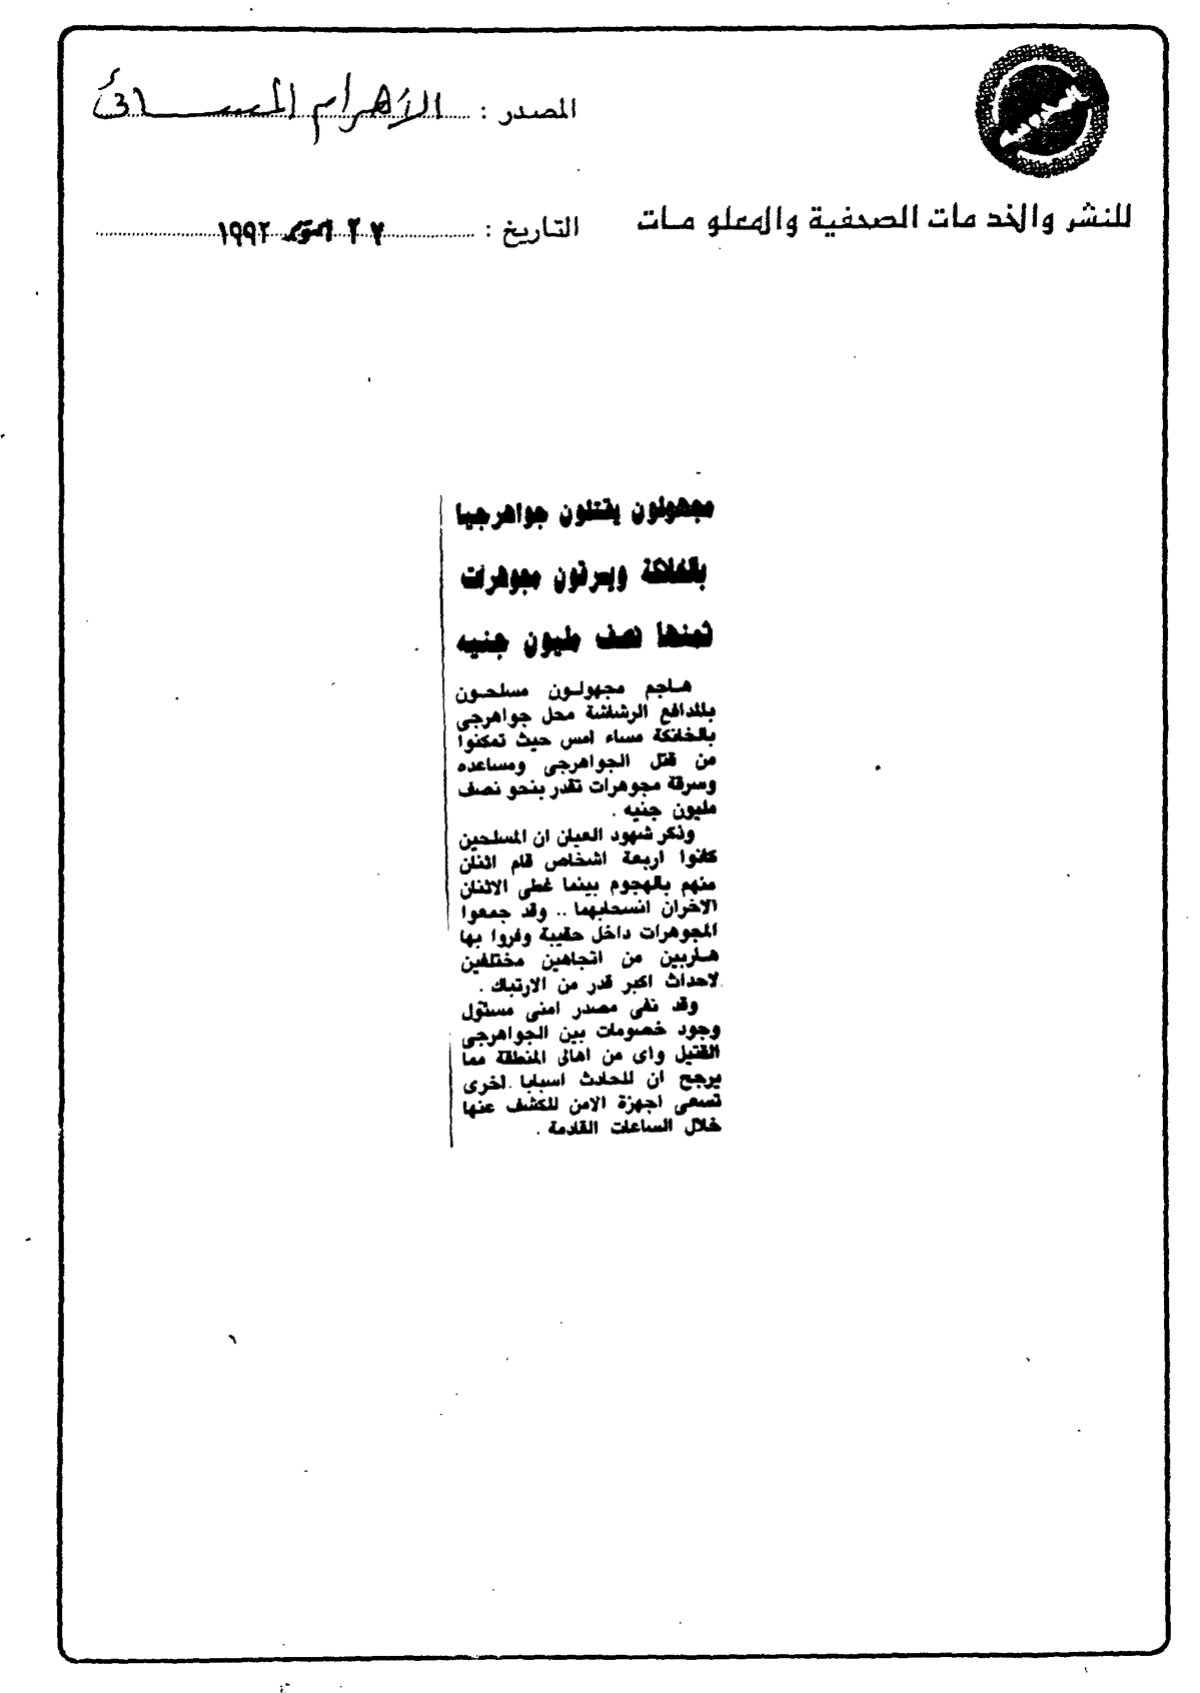 المصدر : الأهرام المسائى
للنشر والخدمات الصحفية والمعلومات
التاريخ : ٢٧ اكتوبر ١٩٩٢
مجهولون يقتلون جواهرجيا
بالخانكة ويسرقون مجوهرات
ثمنها نصف مليون جنيه
هاجم مجهولون مسلحون
بالمدافع الرشاشة محل جواهرجى
بالخانكة مساء امس حيث تمكنوا
من قتل الجواهرجى ومساعده
وسرقة مجوهرات تقدر بنحو نصف
مليون جنيه .
وذكر شهود العيان ان المسلحين
كانوا اربعة اشخاص قام اثنان
منهم بالهجوم بينما غطى الاثنان
الاخران انسحابهما .. وقد جمعوا
المجوهرات داخل حقيبة وفروا بها
هاربين من اتجاهين مختلفين
لاحداث اكبر قدر من الارتباك .
وقد نفى مصدر امنى مسئول
وجود خصومات بين الجواهرجى
القتيل واى من اهالى المنطقة مما
يرجح ان للحادث اسبابا اخرى
تسعى اجهزة الامن للكشف عنها
خلال الساعات القادمة .